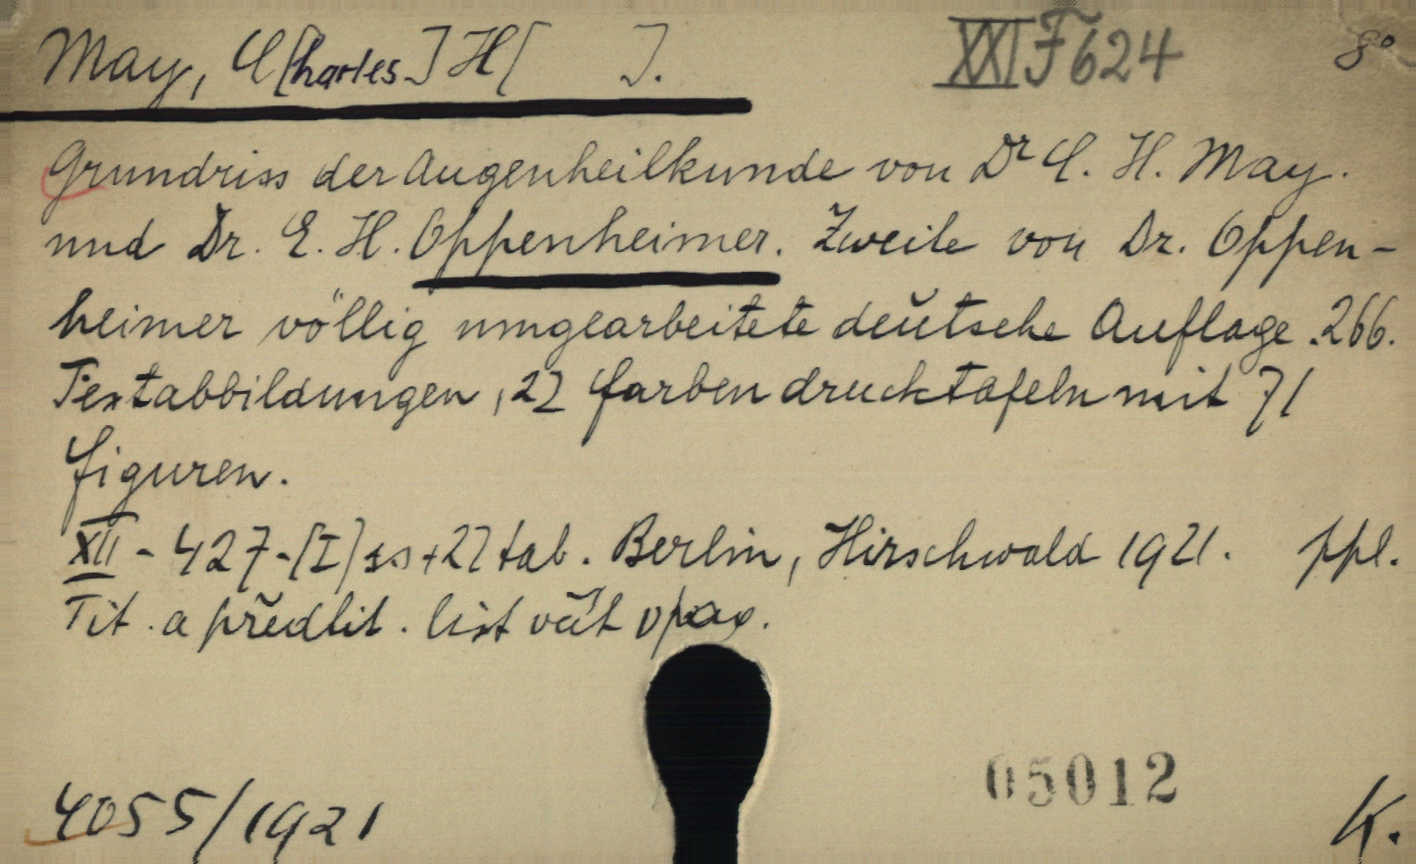 May, C[harles] H[ ]. XXI F 624 8°
Grundriss der Augenheilkunde von Dr C. H. May.
und Dr. E. H. Oppenheimer. Zweite von Dr. Oppen-
heimer völlig umgearbeitete deutsche Auflage. 266.
Textabbildungen, 22 Farbendrucktafeln mit 71
Figuren.
XII - 427 - [I] ss + 22 tab. Berlin, Hirschwald 1921. ppl.
Tit. a předtit. list
05012
4055/1921 K.